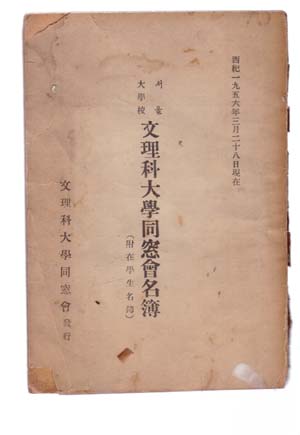 西紀一九五六年三月二十八日現在
서울
大學校
文理科大學同窓會名簿
(附在學生名簿)
文理科大學同窓會 發行